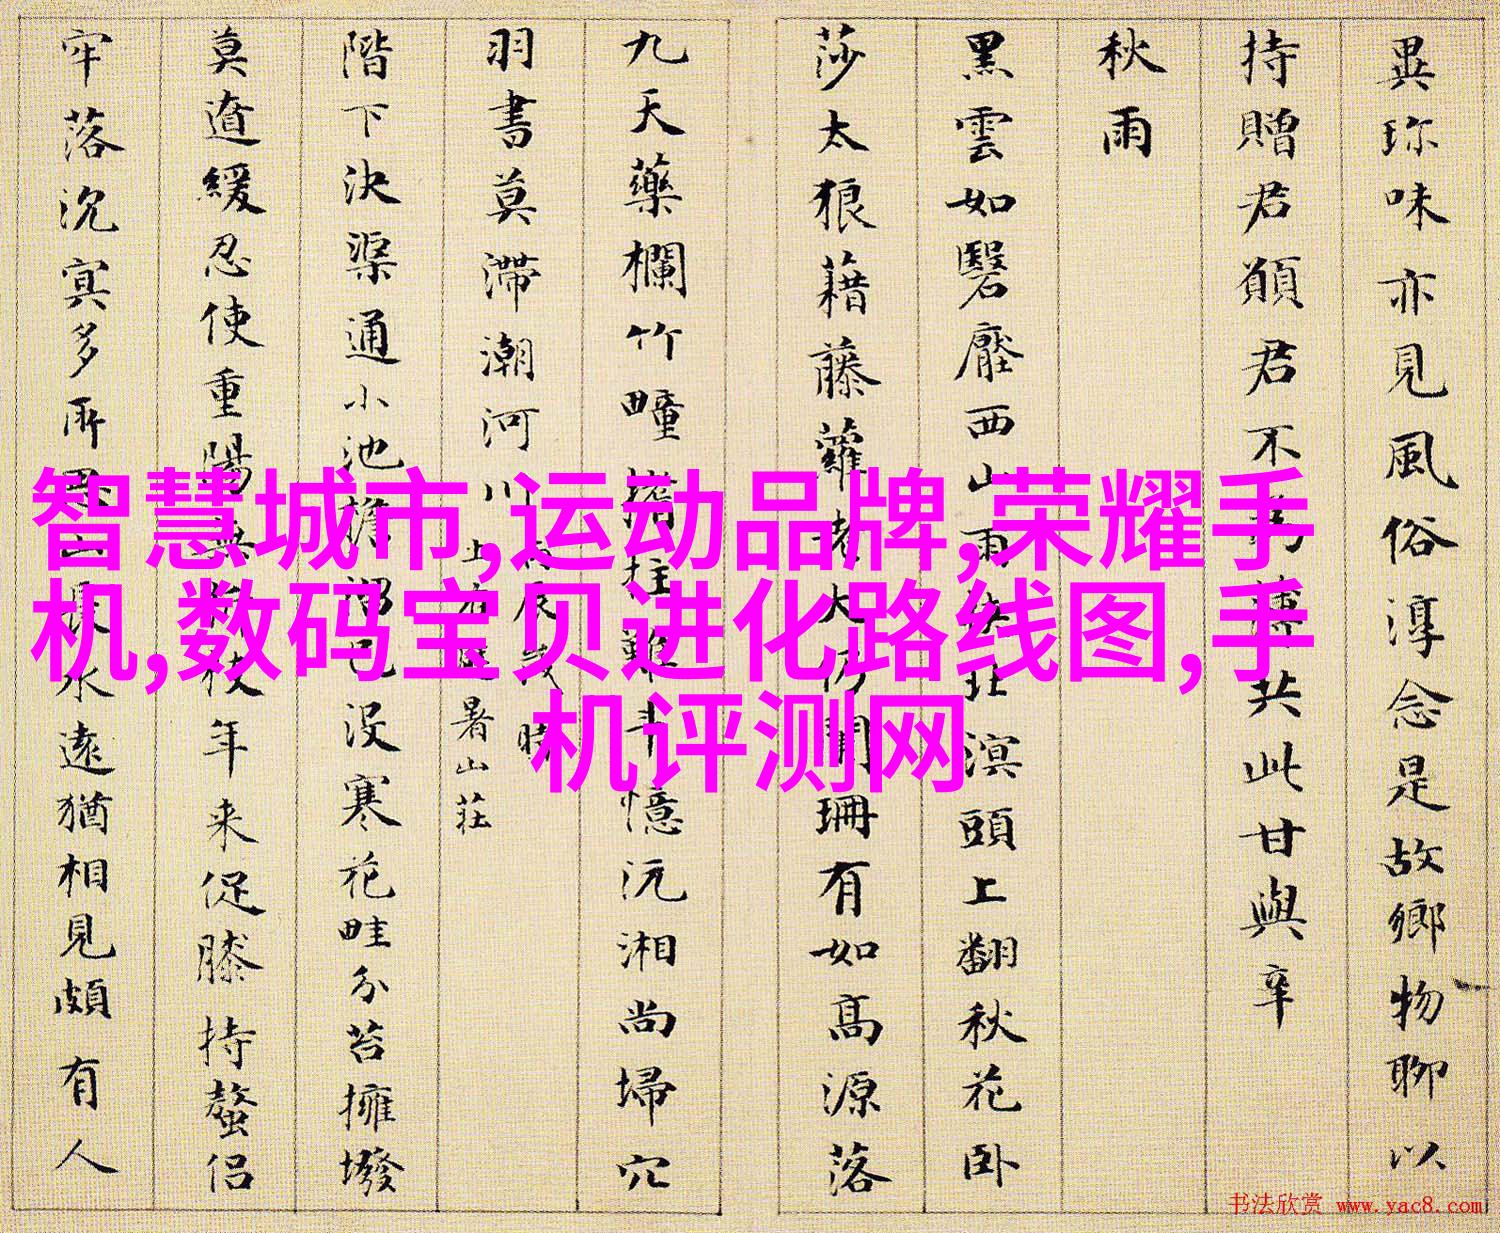 異珎味亦見風俗淳念是故鄉物聊以
持贈君願君不為共此甘與辛
秋雨
黑雲如翳壓西山雨頭上翻秋花卧
莎太狼藉藤蘿老大仍珊有如高源落
九天藥欄竹疃柱難憶沅湘尚埽穴
羽書莫滯潮河川
丙辰歲時
上方避暑山莊
階下決渠通小池没寒花畦分苔擁撥
莫遒緩忍使重陽秋年来促膝持螯侣
牢落沉冥多所思山長水遠猶相見頗有人
智慧城市,运动品牌,荣耀手
机,数码宝贝进化路线图,手
机评测网
书法欣赏 www.yac8.com